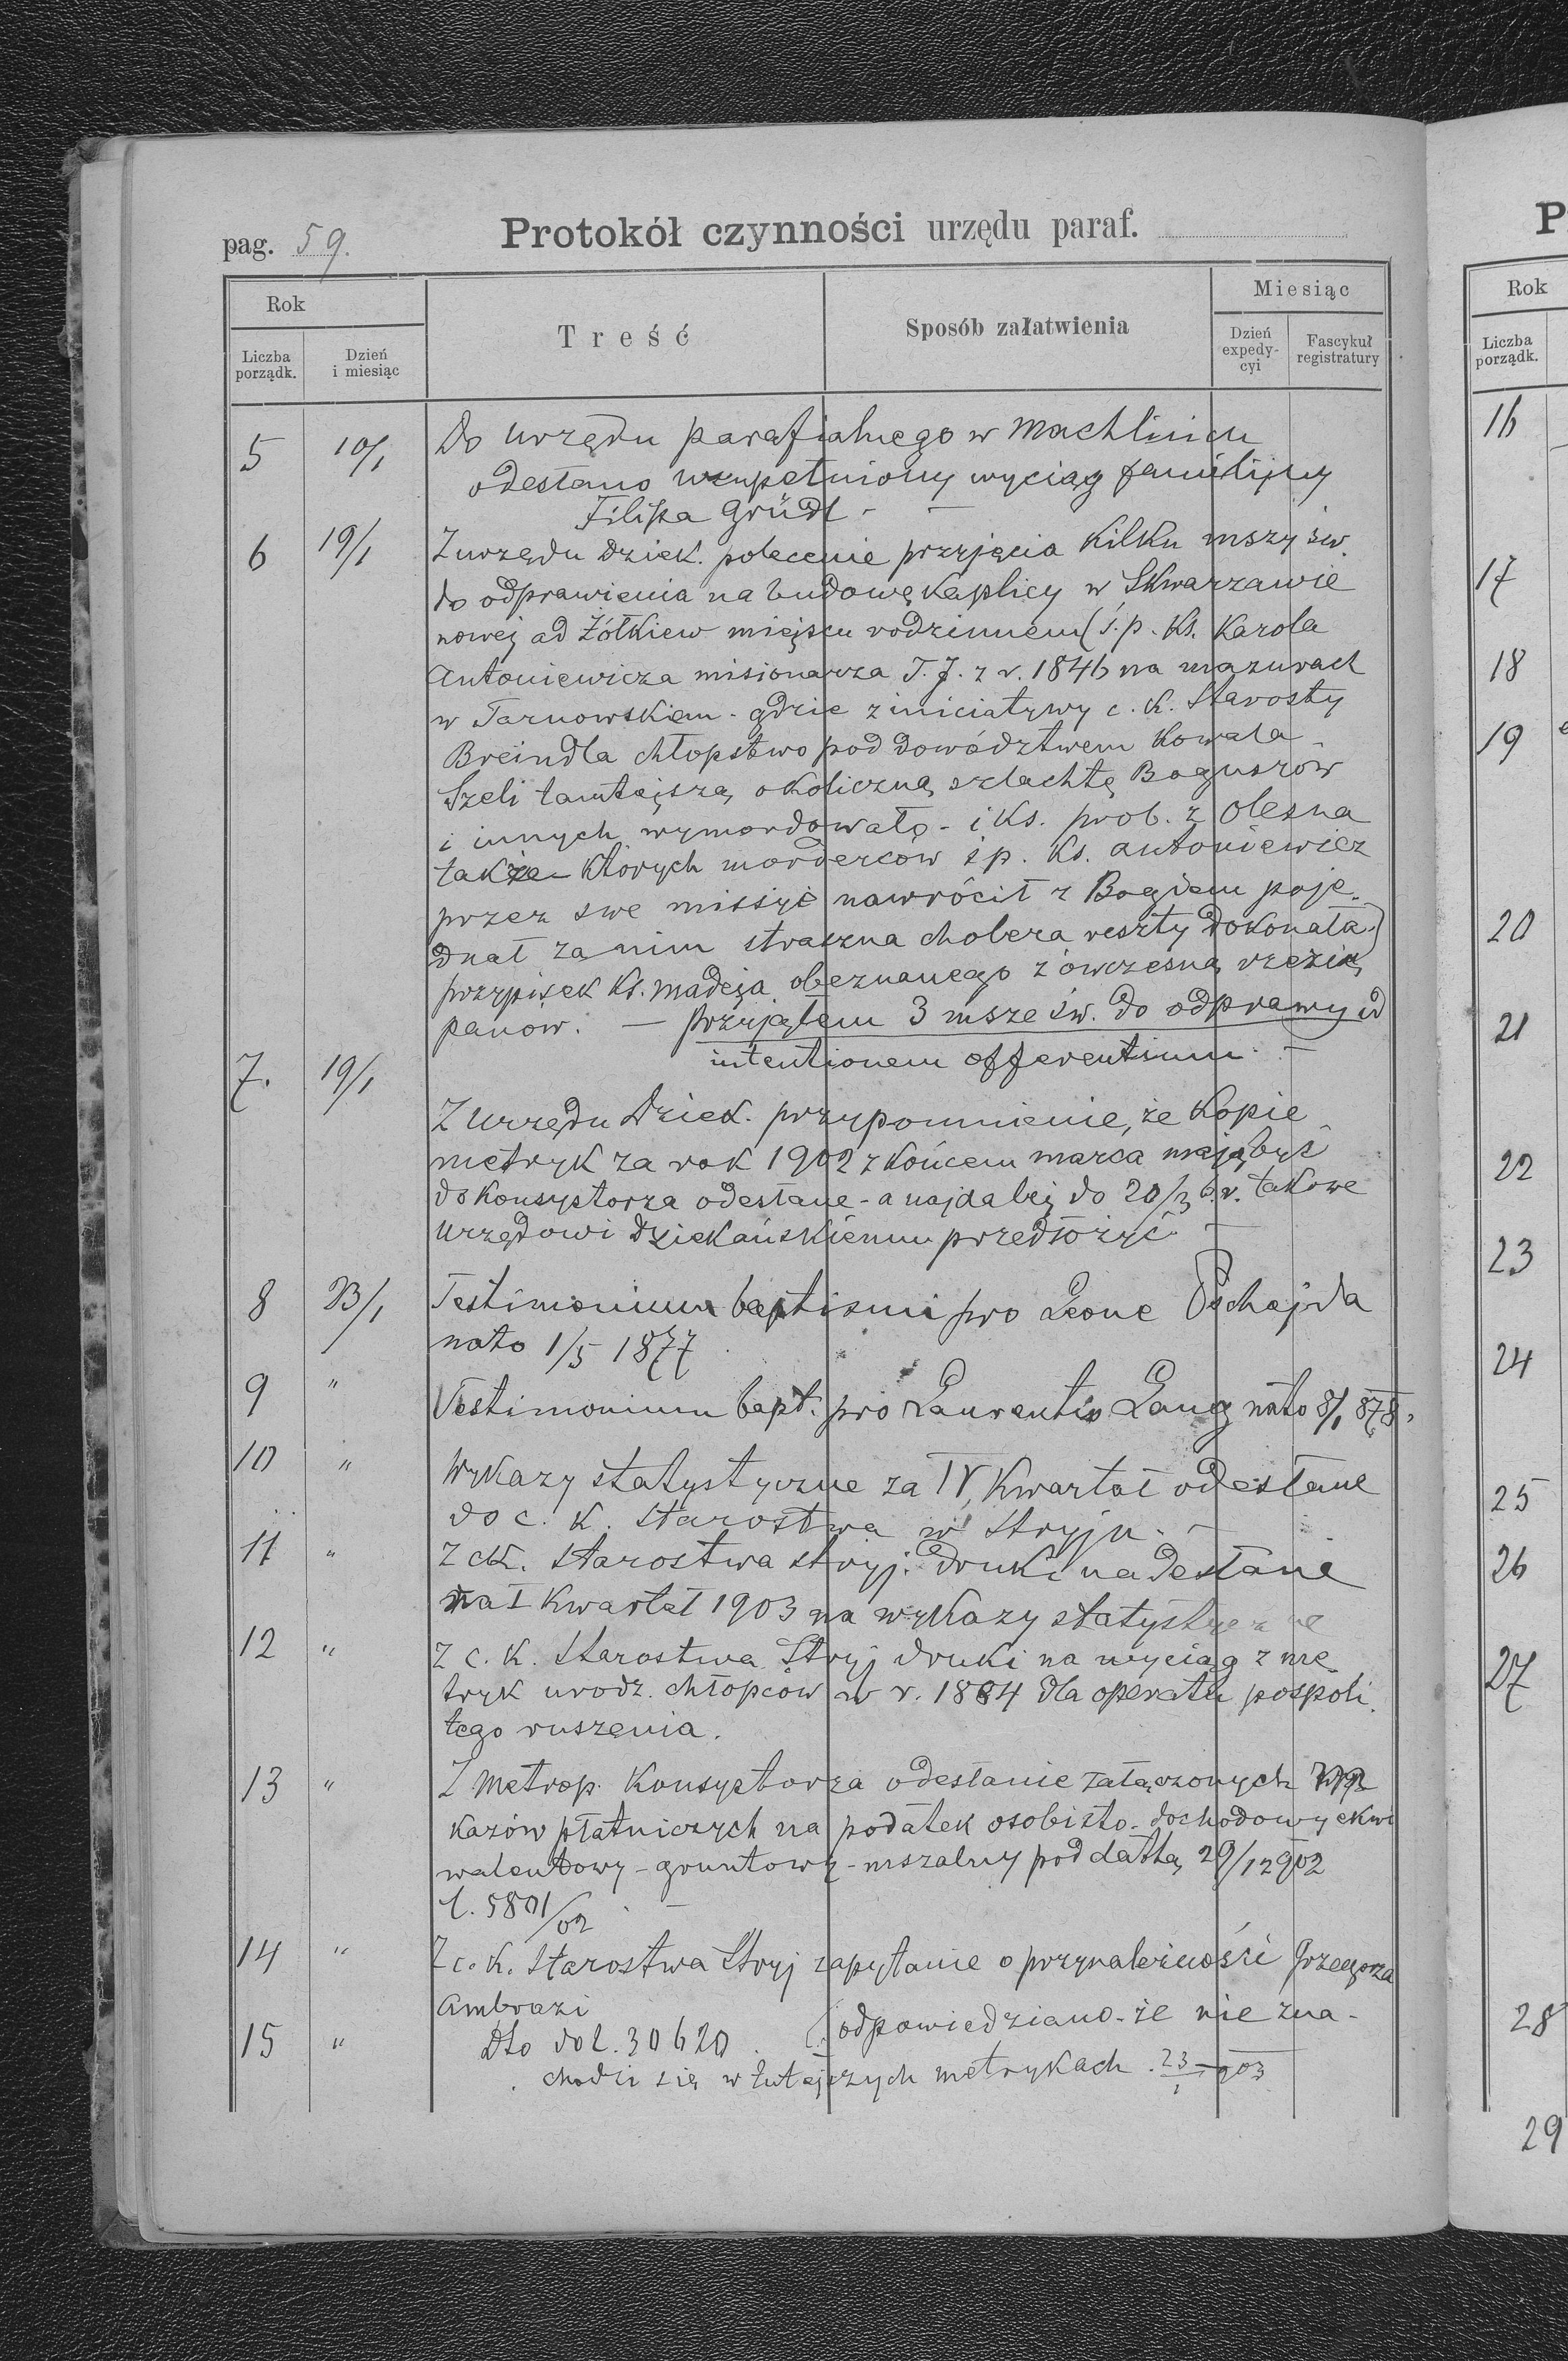 pag. 59.
Protokół czynności urzędu paraf.
Rok
Treść
Sposób załatwienia
Miesiąc
Liczba porządk.
Dzień i miesiąc
Dzień expedycyi
Fascykuł registratury
5 10/1 Do urzędu parafialnego w Machlińcu
odesłano wzupełniony wyciąg familijny
Filipa Gründl -
6 19/1 Z urzędu Dziek. polecenie przyjęcia kilku mszy św.
do odprawienia na budowę kaplicy w Skwarzawie
nowej ad Żółkiew miejscu rodzinnem (ś. p. Ks. Karola
Antoniewicza misionarza T. J. z r. 1846 na mazurach
w Tarnowskiem - gdzie z iniciatywy c. k. Starosty
Breindla chłopstwo pod dowództwem Kowala
Szeli tamtejszą okoliczną szlachtę Boguszów
i innych wymordowało - i Ks. prob. z Olesna
także których morderców śp. Ks. Antoniewicz
przez swe missye nawrócił z Bogiem poje-
dnał za nim straszna cholera reszty dokonała)
przypisek Ks. Madeja obeznanego z ówczesną rzezią
panów. — Przyjąłem 3 msze św. do odprawy ad
intentionem offerentium. —
7. 19/1
Z Urzędu Dziek. przypomnienie, że Kopie
metryk za rok 1902 z końcem marca mają być
do Konsystorza odesłane - a najdalej do 20/3 b. r. takowe
Urzędowi Dziekańskiemu przedłożyć. —
8 23/1 Testimonium baptismi pro Leone Pschajda
nato 1/5 1877
9 " Testimonium bapt. pro Laurentio Lang nato 8/1 878.
10 " Wykazy statystyczne za IV. Kwartał odesłane
do c. k. Starostwa w Stryju. —
11 " Z ck. Starostwa stryj. druki nadesłane
na I Kwartał 1903 na wykazy statystyczne
12 " Z c. k. Starostwa Stryj druki na wyciąg z me-
tryk urodz. chłopców w r. 1884 dla operatu pospoli-
tego ruszenia.
13 " Z Metrop. Konsystorza odesłanie załączonych
kazów płatniczych na podatek osobisto-dochodowy ekwi
walentowy - gruntowy - mszalny pod datką 29/12 902
l. 5801/02. —
14 " Z c. k. Starostwa Stryj zapytanie o przynależność Grzegorza
Ambrazi
15 " Dto do l. 30620. (odpowiedziano - że nie zna-
chodzi się w tutejszych metrykach. 23/1 903
P
Rok
Liczba porządk.
16
17
18
19
20
21
22
23
24
25
26
27
28
29